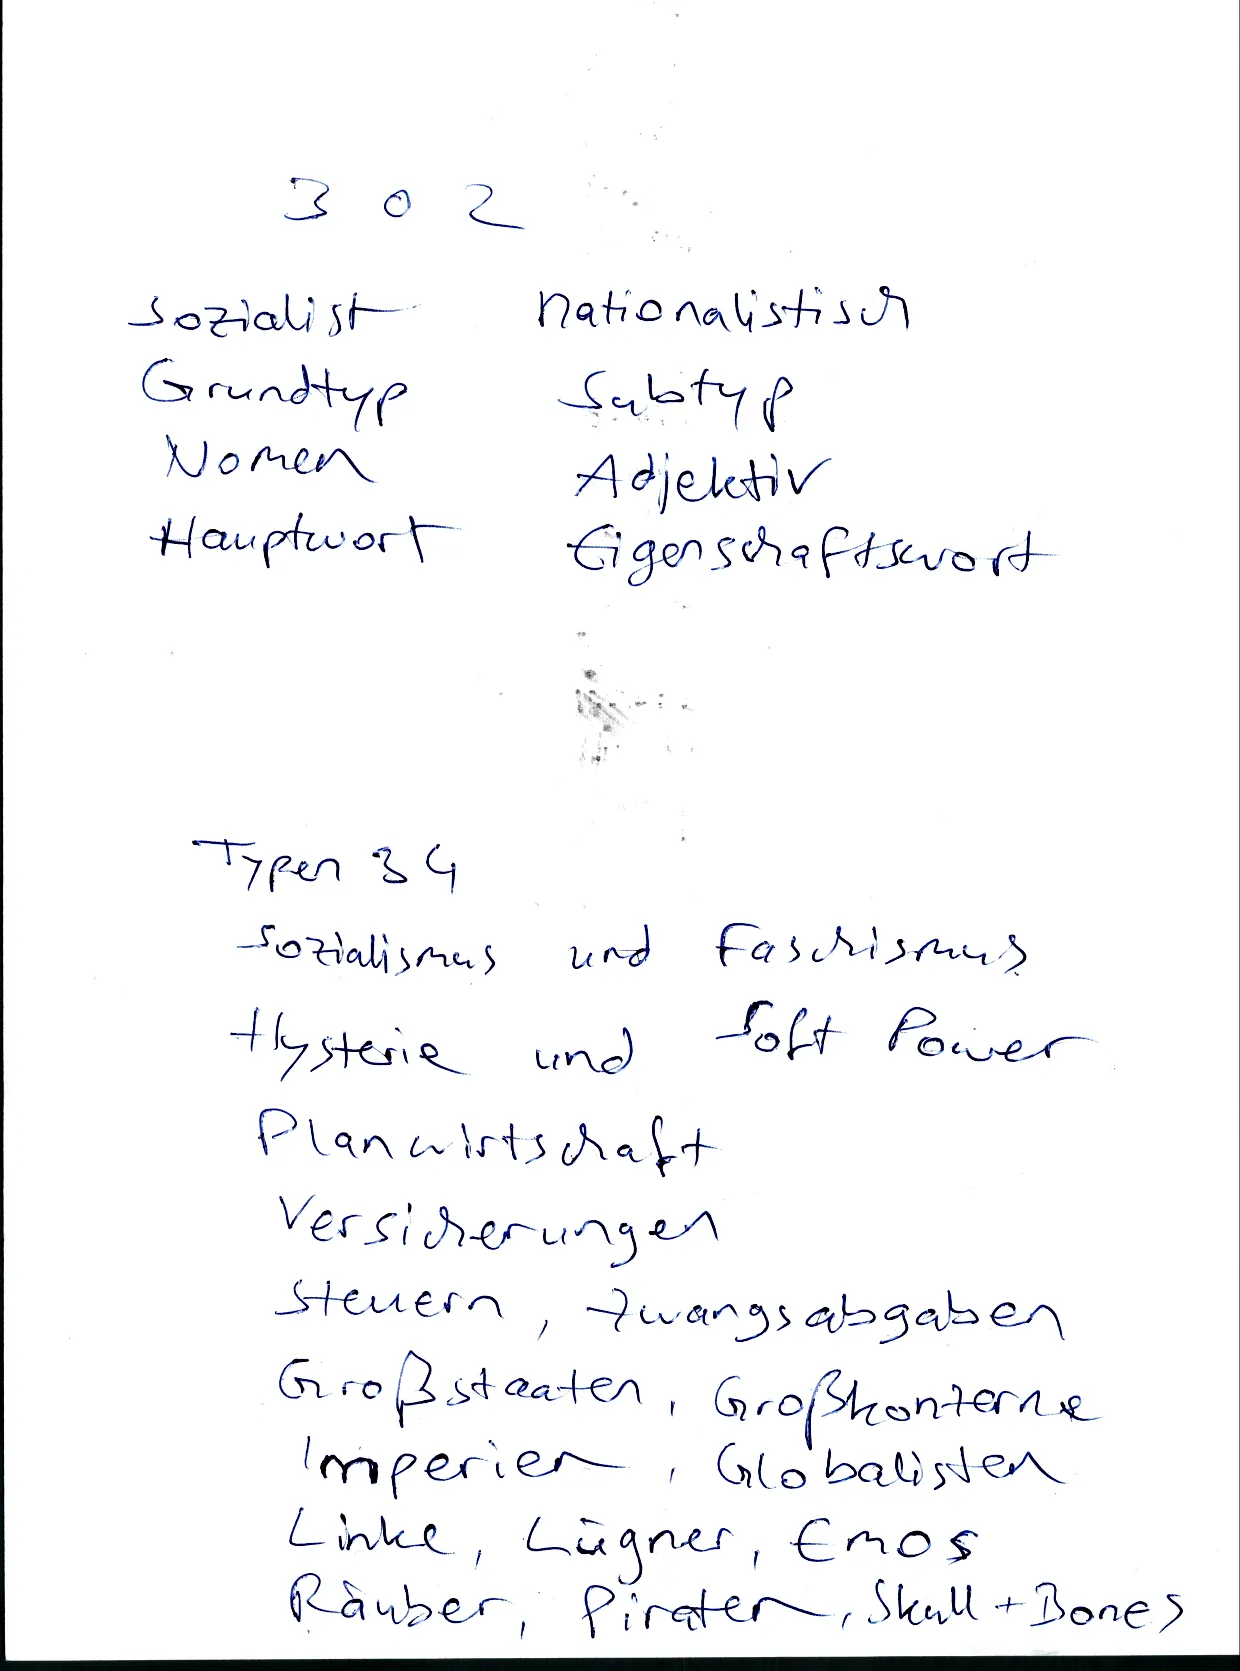 3 0 2
Sozialist nationalistisch
Grundtyp Subtyp
Nomen Adjektiv
Hauptwort Eigenschaftswort
Typen 3 4
Sozialismus und Faschismus
Hysterie und Soft Power
Planwirtschaft
Versicherungen
Steuern, Zwangsabgaben
Großstaaten, Großkonzerne
Imperien, Globalisten
Linke, Lügner, Emos
Räuber, Piraten, Skull + Bones